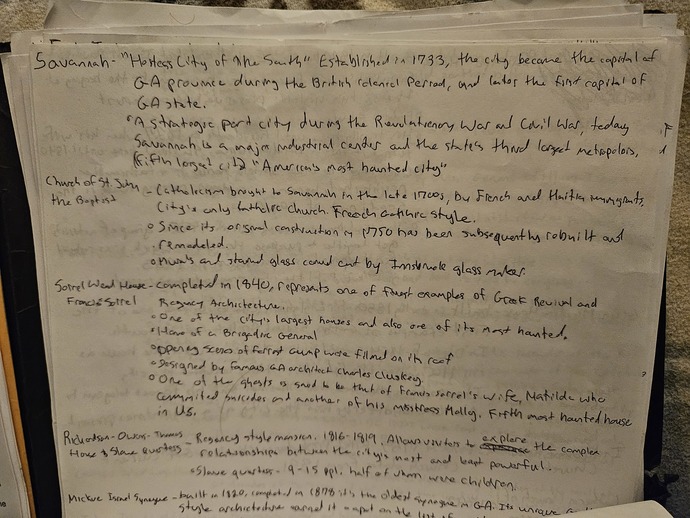 Savannah - "Hostess City of The South" Established in 1733, the city became the capital of
GA province during the British colonial Period, and later the first capital of
GA state.
• A strategic port city during the Revolutionary War and Civil War, today
Savannah is a major industrial center and the state's third largest metropolis,
(Fifth largest city) "America's most haunted city"
Church of St. John
the Baptist
- Catholicism brought to Savannah in the late 1700s, by French and Haitian immigrants.
City's only Catholic church. French Gothic style.
• Since its original construction in 1750 has been subsequently rebuilt and
remodeled.
• Murals and stained glass by Innsbruck glass maker.
Sorrel Weed House - completed in 1840, represents one of finest examples of Greek Revival and
Francis Sorrel
Regency Architecture.
• One of the city's largest houses and also one of its most haunted.
• Home of a Brigadier General
• Opening scenes of Forrest Gump were filmed on its roof
• Designed by famous GA architect Charles Cluskey.
• One of the ghosts is said to be that of Francis Sorrel's wife, Matilda who
committed suicides and another of his mistress Molley. Fifth most haunted house
in U.S.
Richardson-Owens-Thomas
House & Slave quarters
- Regency style mansion, 1816-1819. Allows visitors to explore the complex
relationships between the city's most and least powerful.
• Slave quarters - 9-15 ppl, half of whom were children.
Mickve Israel Synagogue - built in 1820, completed in 1878 it's the oldest synagogue in GA. Its unique
style architecture earned it a spot on the list of